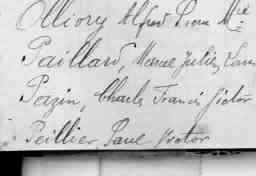 Olliory Alfred Pierre Mce
Paillard, Marcel Jules Louis
Pezin, Charles Francis Victor
Peillier, Paul Victor